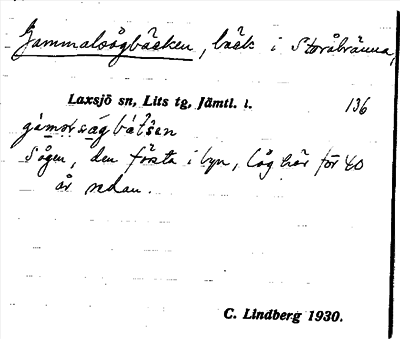 Gammalsågbäcken, bäck i Storåbränna,
Laxsjö sn, Lits tg, Jämtl. l. 136
Sågen, den första i byn, låg här för 60
år sedan.
C. Lindberg 1930.